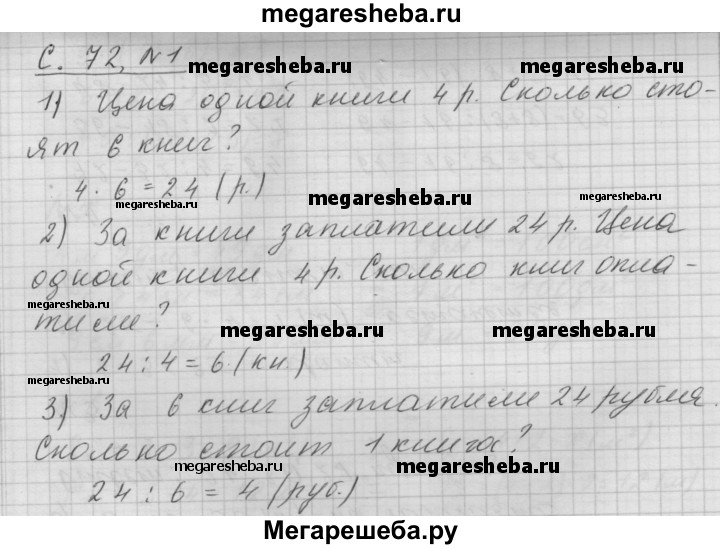 megaresheba.ru
С. 72, №1
megaresheba.ru megaresheba.ru
1) Цена одной книги 4 р. Сколько сто-
ят 6 книг?
4 · 6 = 24 (р.)
megaresheba.ru megaresheba.ru
2) За книги заплатили 24 р. Цена
одной книги 4 р. Сколько книг опла-
megaresheba.ru
тили?
megaresheba.ru megaresheba.ru
24 : 4 = 6 (кн.)
megaresheba.ru
3) За 6 книг заплатили 24 рубля.
Сколько стоит 1 книга?
megaresheba.ru megaresheba.ru
24 : 6 = 4 (руб.)
Мегарешеба.ру